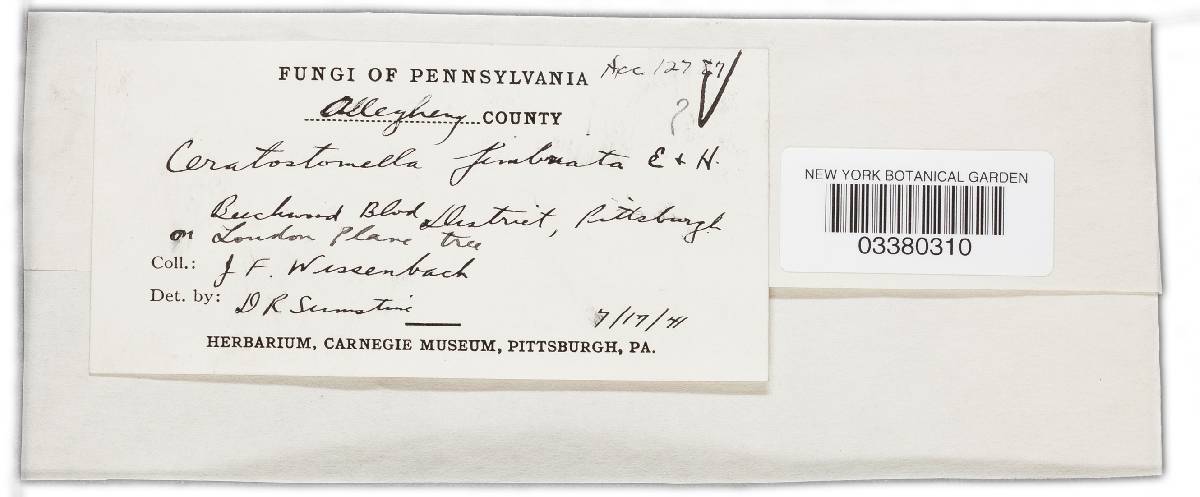 FUNGI OF PENNSYLVANIA Acc 12787
Allegheny COUNTY ?
Ceratostomella fimbriata E & H.
Beechwood Blvd District, Pittsburgh
on London Plane tree
Coll.: J F. Wissenbach
Det. by: D R Sumstine
7/17/41
HERBARIUM, CARNEGIE MUSEUM, PITTSBURGH, PA.
NEW YORK BOTANICAL GARDEN
03380310